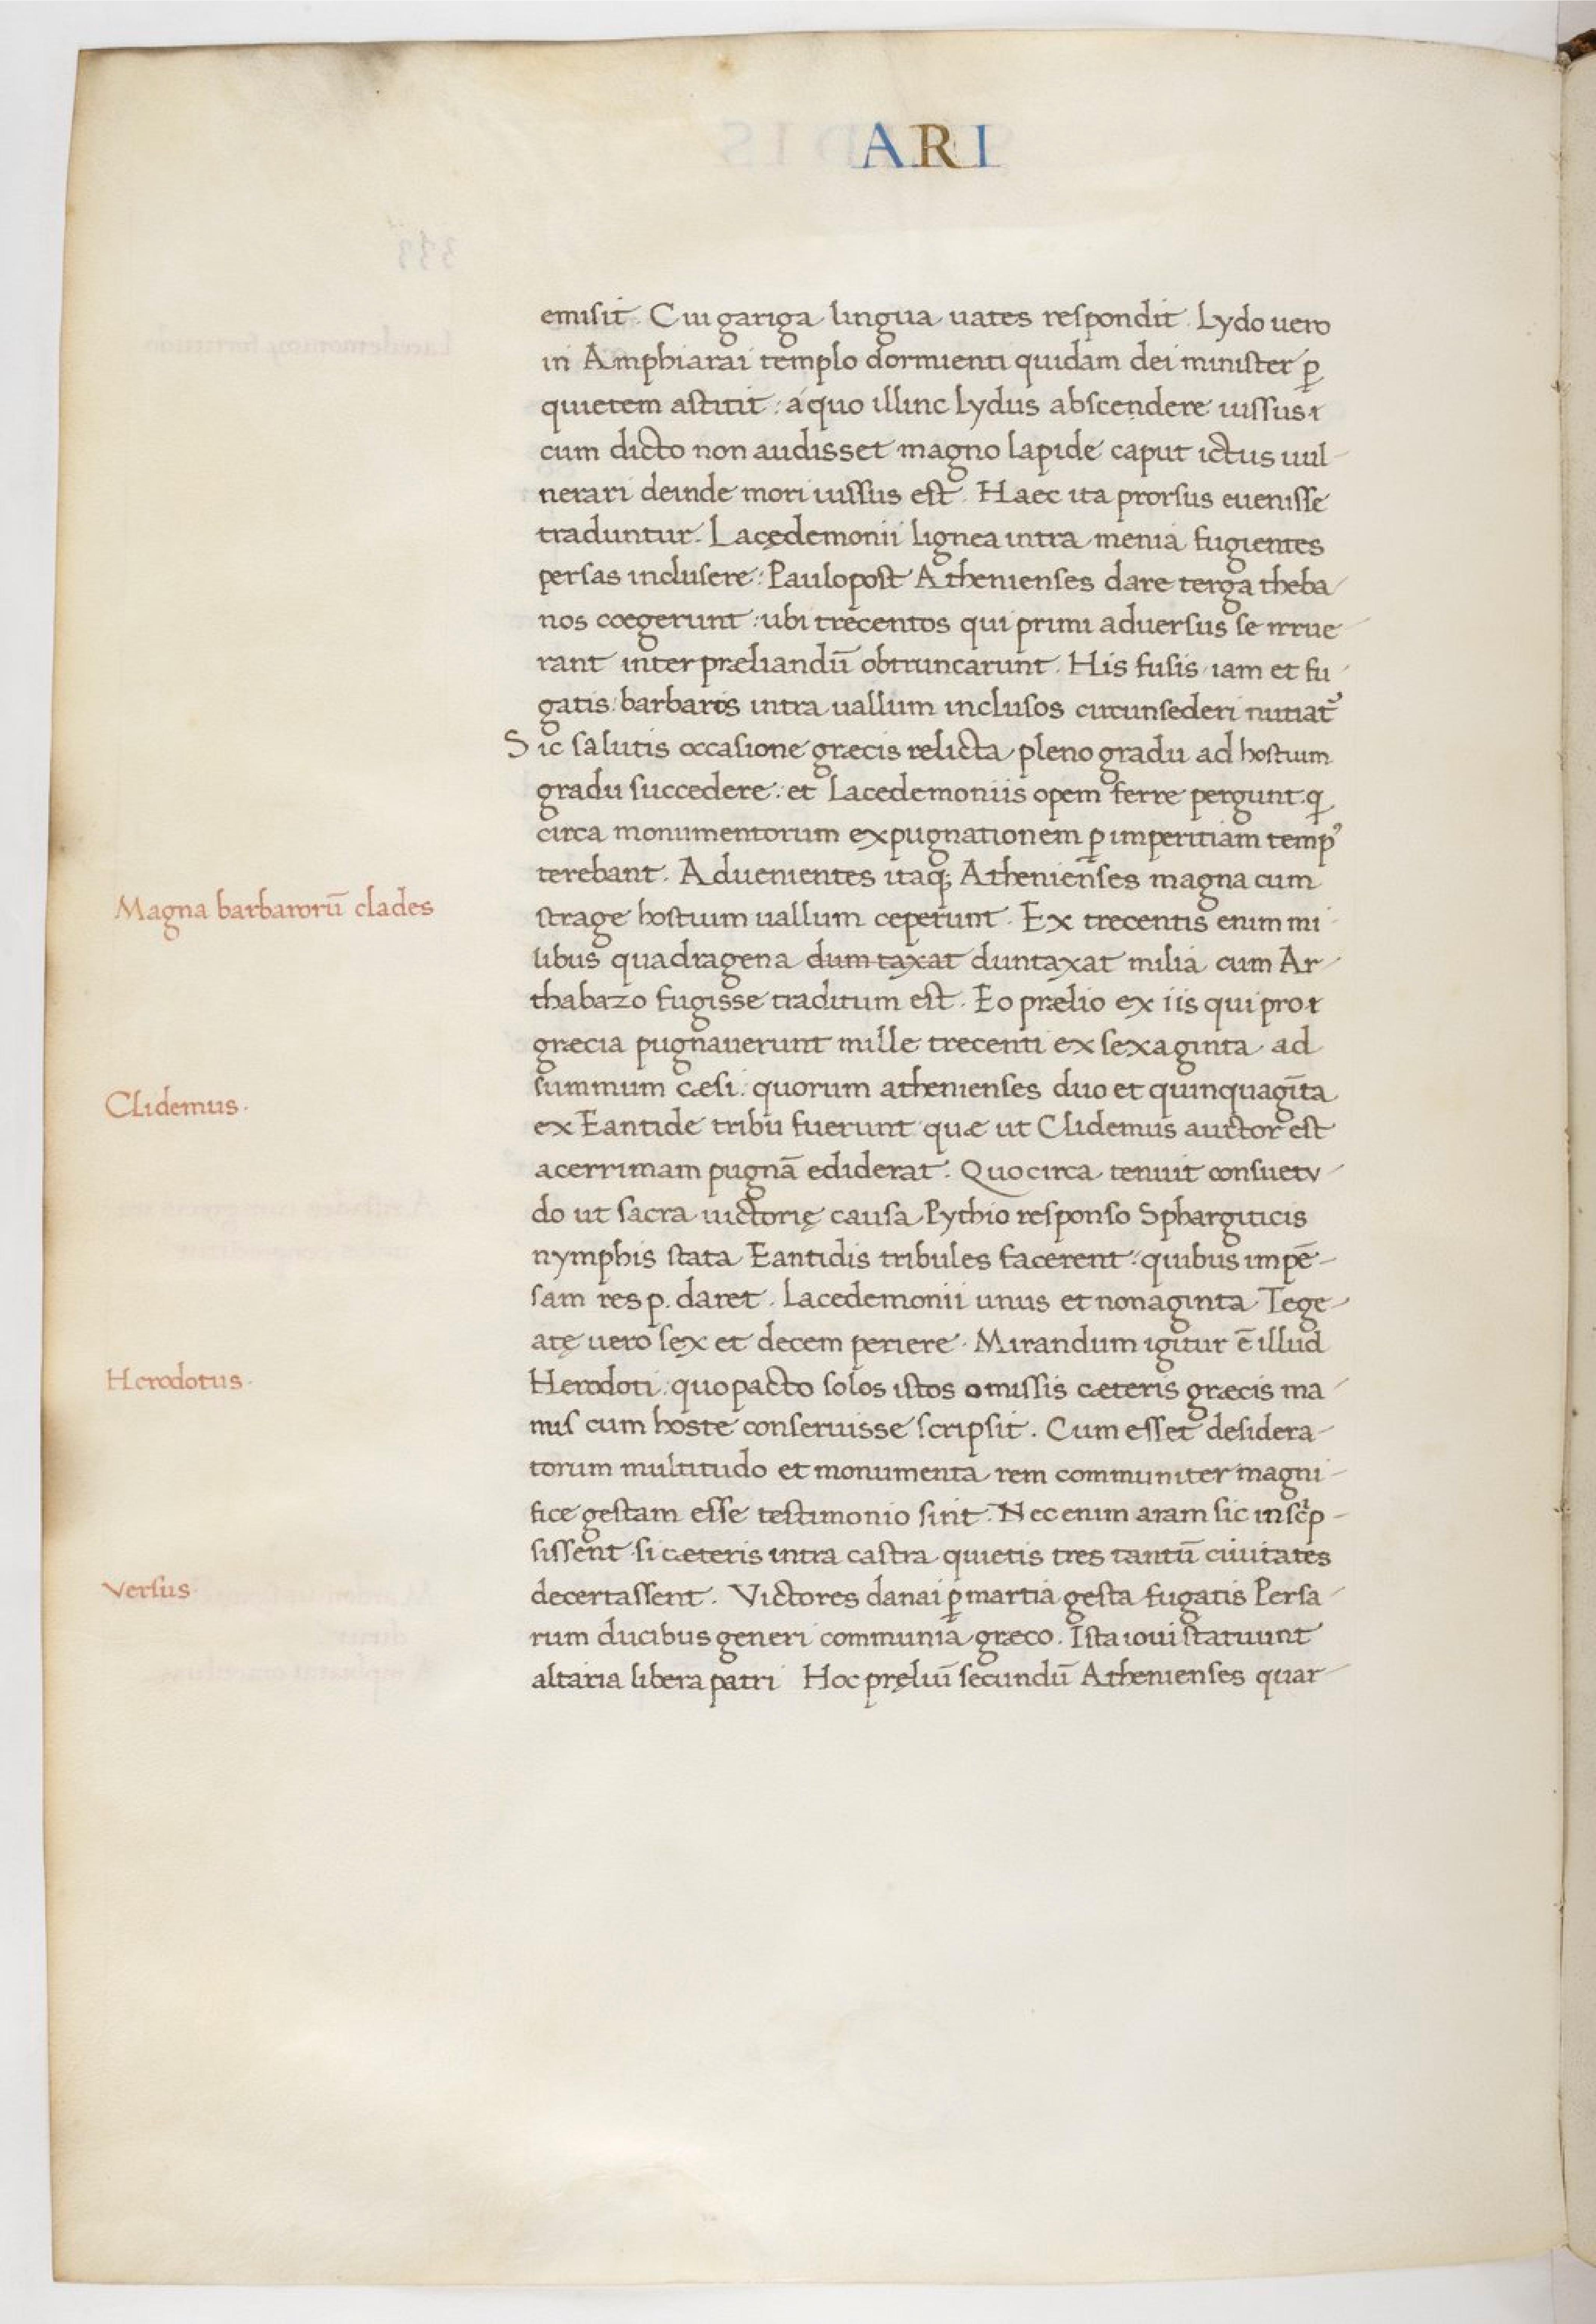 ARI
emisit. Cui gariga lingua uates respondit. Lydo uero
in Amphiarai templo dormienti quidam dei minister ꝑ
quietem astitit: a quo illinc Lydus abscendere iussus
cum dicto non audisset magno lapide caput ictus uul-
nerari deinde mori iussus est. Haec ita prorsus euenisse
traduntur. Lacędemonii lignea intra menia fugientes
persas inclusere: Paulopost Athenienses dare terga theba-
nos coegerunt: ubi trecentos qui primi aduersus se irrue-
rant inter præliandū obtruncarunt. His fusis iam et fu-
gatis: barbaros intra uallum inclusos circunsederi nuntiat᷑
Sic salutis occasione græcis relicta pleno gradu ad hostium
gradu succedere: et Lacedemoniis opem ferre pergunt. qͥ
circa monumentorum expugnationem ꝑ imperitiam tempꝰ
terebant. Aduenientes itaqꝫ Athenienses magna cum
Magna barbarorū clades
strage hostium uallum ceperunt. Ex trecentis enim mi-
libus quadragena dumtaxat duntaxat milia cum Ar-
thabazo fugisse traditum est. Eo prælio ex iis qui pro
græcia pugnauerunt mille trecenti ex sexaginta ad
summum cæsi: quorum athenienses duo et quinquagīta
Clidemus.
ex Eantide tribu fuerunt quæ ut Clidemus auctor est
acerrimam pugnā ediderat. Quocirca tenuit consuetu-
do ut sacra uictorię causa Pythio responso Sphargiticis
nymphis stata Eantidis tribules facerent: quibus impē-
sam res p. daret. Lacedemonii unus et nonaginta Tege-
atę uero sex et decem periere. Mirandum igitur ē illud
Herodotus.
Herodoti: quo pacto solos istos omissis cæteris græcis ma-
nus cum hoste conseruisse scripsit. Cum esset desidera-
torum multitudo et monumenta rem communiter magni-
fice gestam esse testimonio sint. Nec enim aram sic inscͥp-
sissent si cæteris intra castra quietis tres tantū ciuitates
Versus.
decertassent. Victores danai ꝑ martia gesta fugatis Persa-
rum ducibus generi communia græco. Ista ioui statuunt
altaria libera patri Hoc pręliū secundū Athenienses quar-